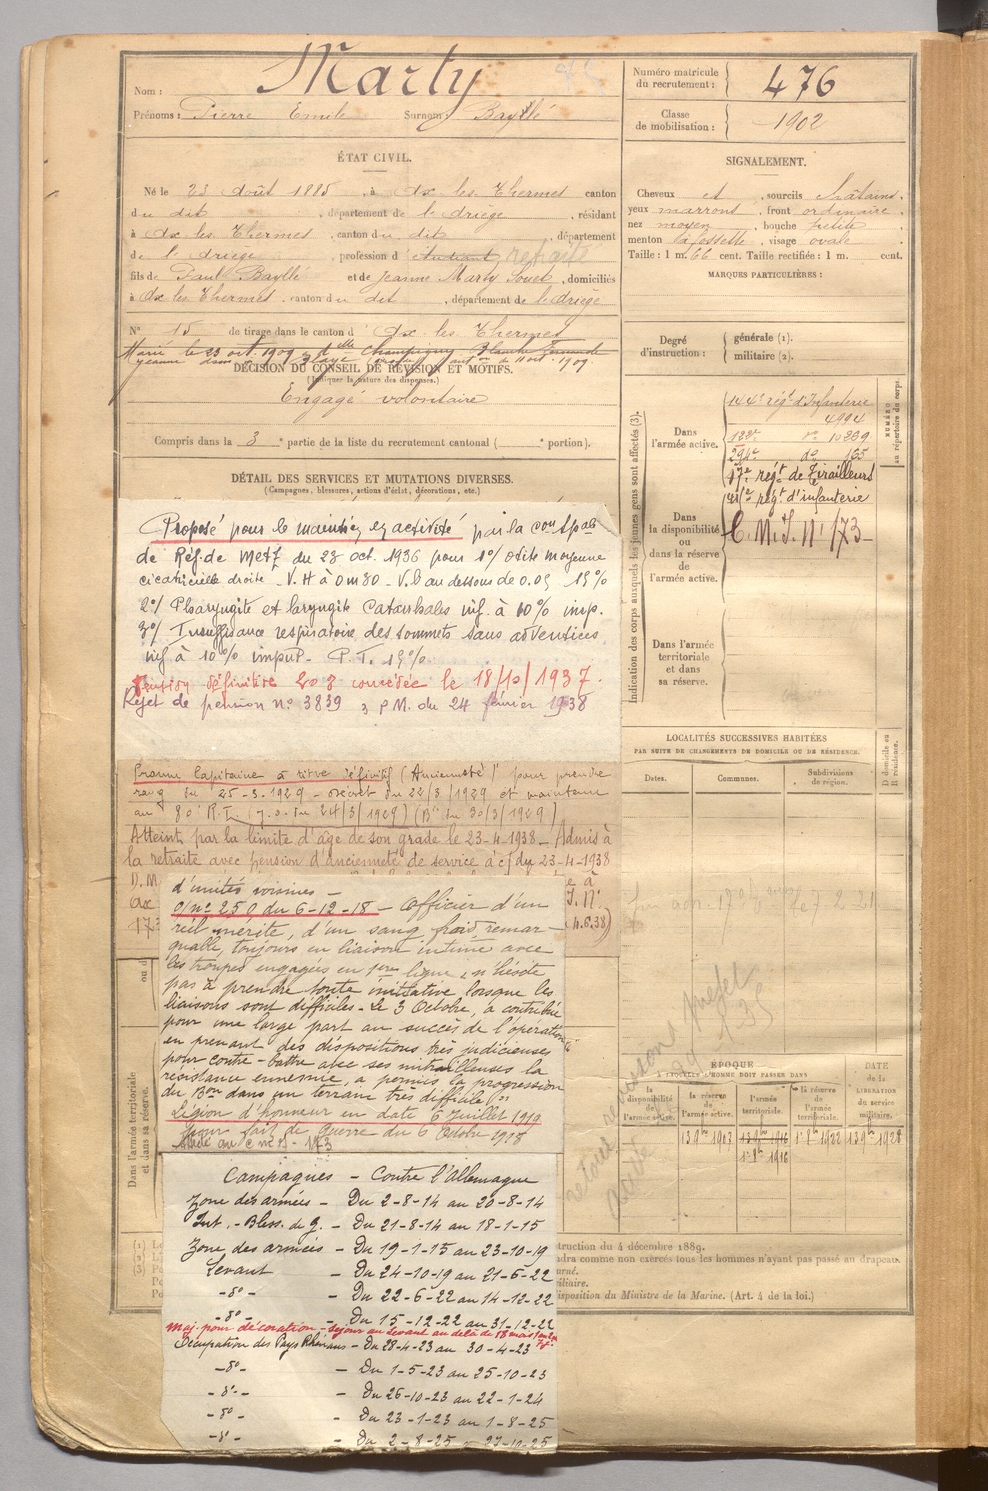 Nom : Marty
Prénoms : Pierre Emile Surnom : Baylé
Numéro matricule du recrutement : 476
Classe de mobilisation : 1902
ÉTAT CIVIL.
Né le 23 Août 1885, à Ax les Thermes canton
du dit, département de l'Ariège, résidant
à Ax les Thermes, canton du dit, département
de l'Ariège, profession d'étudiant retraité
fils de Paul Bayllé et de Jeanne Marty Souet, domiciliés
à Ax les Thermes, canton du dit, département de l'Ariège
N° 15 de tirage dans le canton d'Ax les Thermes
Marié le 23 oct. 1909 à dlle Champigny Blanche Fernande
DÉCISION DU CONSEIL DE RÉVISION ET MOTIFS.
(Indiquer la nature des dispenses.)
Engagé volontaire
Compris dans la 3e partie de la liste du recrutement cantonal ( e portion).
DÉTAIL DES SERVICES ET MUTATIONS DIVERSES.
(Campagnes, blessures, actions d'éclat, décorations, etc.)
Proposé pour le maintien en activité par la con Spale
de Réf. de Metz du 23 oct. 1936 pour 1°/ otite moyenne
cicatricielle droite - V.H à 0m80 - V.b au dessous de 0.05 15%
2°/ Pharyngite et laryngite catarrhales inf. à 10% imp.
3°/ Insuffisance respiratoire des sommets sans adventices
inf à 10% imput. P.T. 15%.
Pension définitive concédée le 18/10/1937.
Rejet de pension n° 3839 3 PM. du 24 février 1938
Promu Capitaine à titre définitif (Ancienneté) pour prendre
rang du 25-3-1929 - décret du 22/3/1929 et maintenu
au 80e R.I. (J.O. du 24/3/1929) (Bin du 30/3/1929)
Atteint par la limite d'âge de son grade le 23-4-1938 - Admis à
la retraite avec pension d'ancienneté de service à c/ du 23-4-1938
d'unités voisines -
O/ n° 250 du 6-12-18 - Officier d'un
réel mérite, d'un sang froid remar-
quable, toujours en liaison intime avec
les troupes engagées en 1ère ligne, n'hésite
pas à prendre toute initiative lorsque les
liaisons sont difficiles - Le 3 Octobre, a contribué
pour une large part au succès de l'opération
en prenant des dispositions très judicieuses
pour contre-battre avec ses mitrailleuses la
résistance ennemie, a permis la progression
du Bon dans un terrain très difficile
Légion d'honneur en date 6 Juillet 1919
pour fait de guerre du 6 Octobre 1918
Campagnes - Contre l'Allemagne
Zone des armées - Du 2-8-14 au 20-8-14
Int. - Bless. de g. - Du 21-8-14 au 18-1-15
Zone des armées - Du 19-1-15 au 23-10-19
Levant - Du 24-10-19 au 21-6-22
- d° - - Du 22-6-22 au 14-12-22
- d° - - Du 15-12-22 au 31-12-22
Maj. pour décoration - séjour au Levant au delà de 18 mois
Occupation des Pays Rhénans - Du 28-4-23 au 30-4-23
- d° - - Du 1-5-23 au 25-10-23
- d° - - Du 26-10-23 au 22-1-24
- d° - - Du 23-1-23 au 1-8-25
- d° - - Du 2-8-25
SIGNALEMENT.
Cheveux et, sourcils châtains,
yeux marrons, front ordinaire,
nez moyen, bouche petite,
menton à fossette, visage ovale.
Taille : 1 m. 66 cent. Taille rectifiée : 1 m. cent.
MARQUES PARTICULIÈRES :
Degré d'instruction : générale (1). militaire (2).
Indication des corps auxquels les jeunes gens sont affectés (3).
NUMÉRO au répertoire du corps.
Dans l'armée active.
144e régt d'Infanterie
4994
122e
17e régt de Tirailleurs
régt d'infanterie
Dans la disponibilité ou dans la réserve de l'armée active.
C.M.I. N° 173
Dans l'armée territoriale et dans sa réserve.
LOCALITÉS SUCCESSIVES HABITÉES
PAR SUITE DE CHANGEMENTS DE DOMICILE OU DE RÉSIDENCE.
D domicile ou R résidence.
Dates. Communes. Subdivisions de région.
ÉPOQUE
À LAQUELLE L'HOMME DOIT PASSER DANS
DATE de la LIBÉRATION du service militaire.
la disponibilité de l'armée active.
la réserve de l'armée active.
l'armée territoriale.
la réserve de l'armée territoriale.
Dans l'armée territoriale et dans sa réserve.
(1)
(2)
(3)
struction du 4 décembre 1889.
dra comme non exercés tous les hommes n'ayant pas passé au drapeau.
isposition du Ministre de la Marine. (Art. 4 de la loi.)